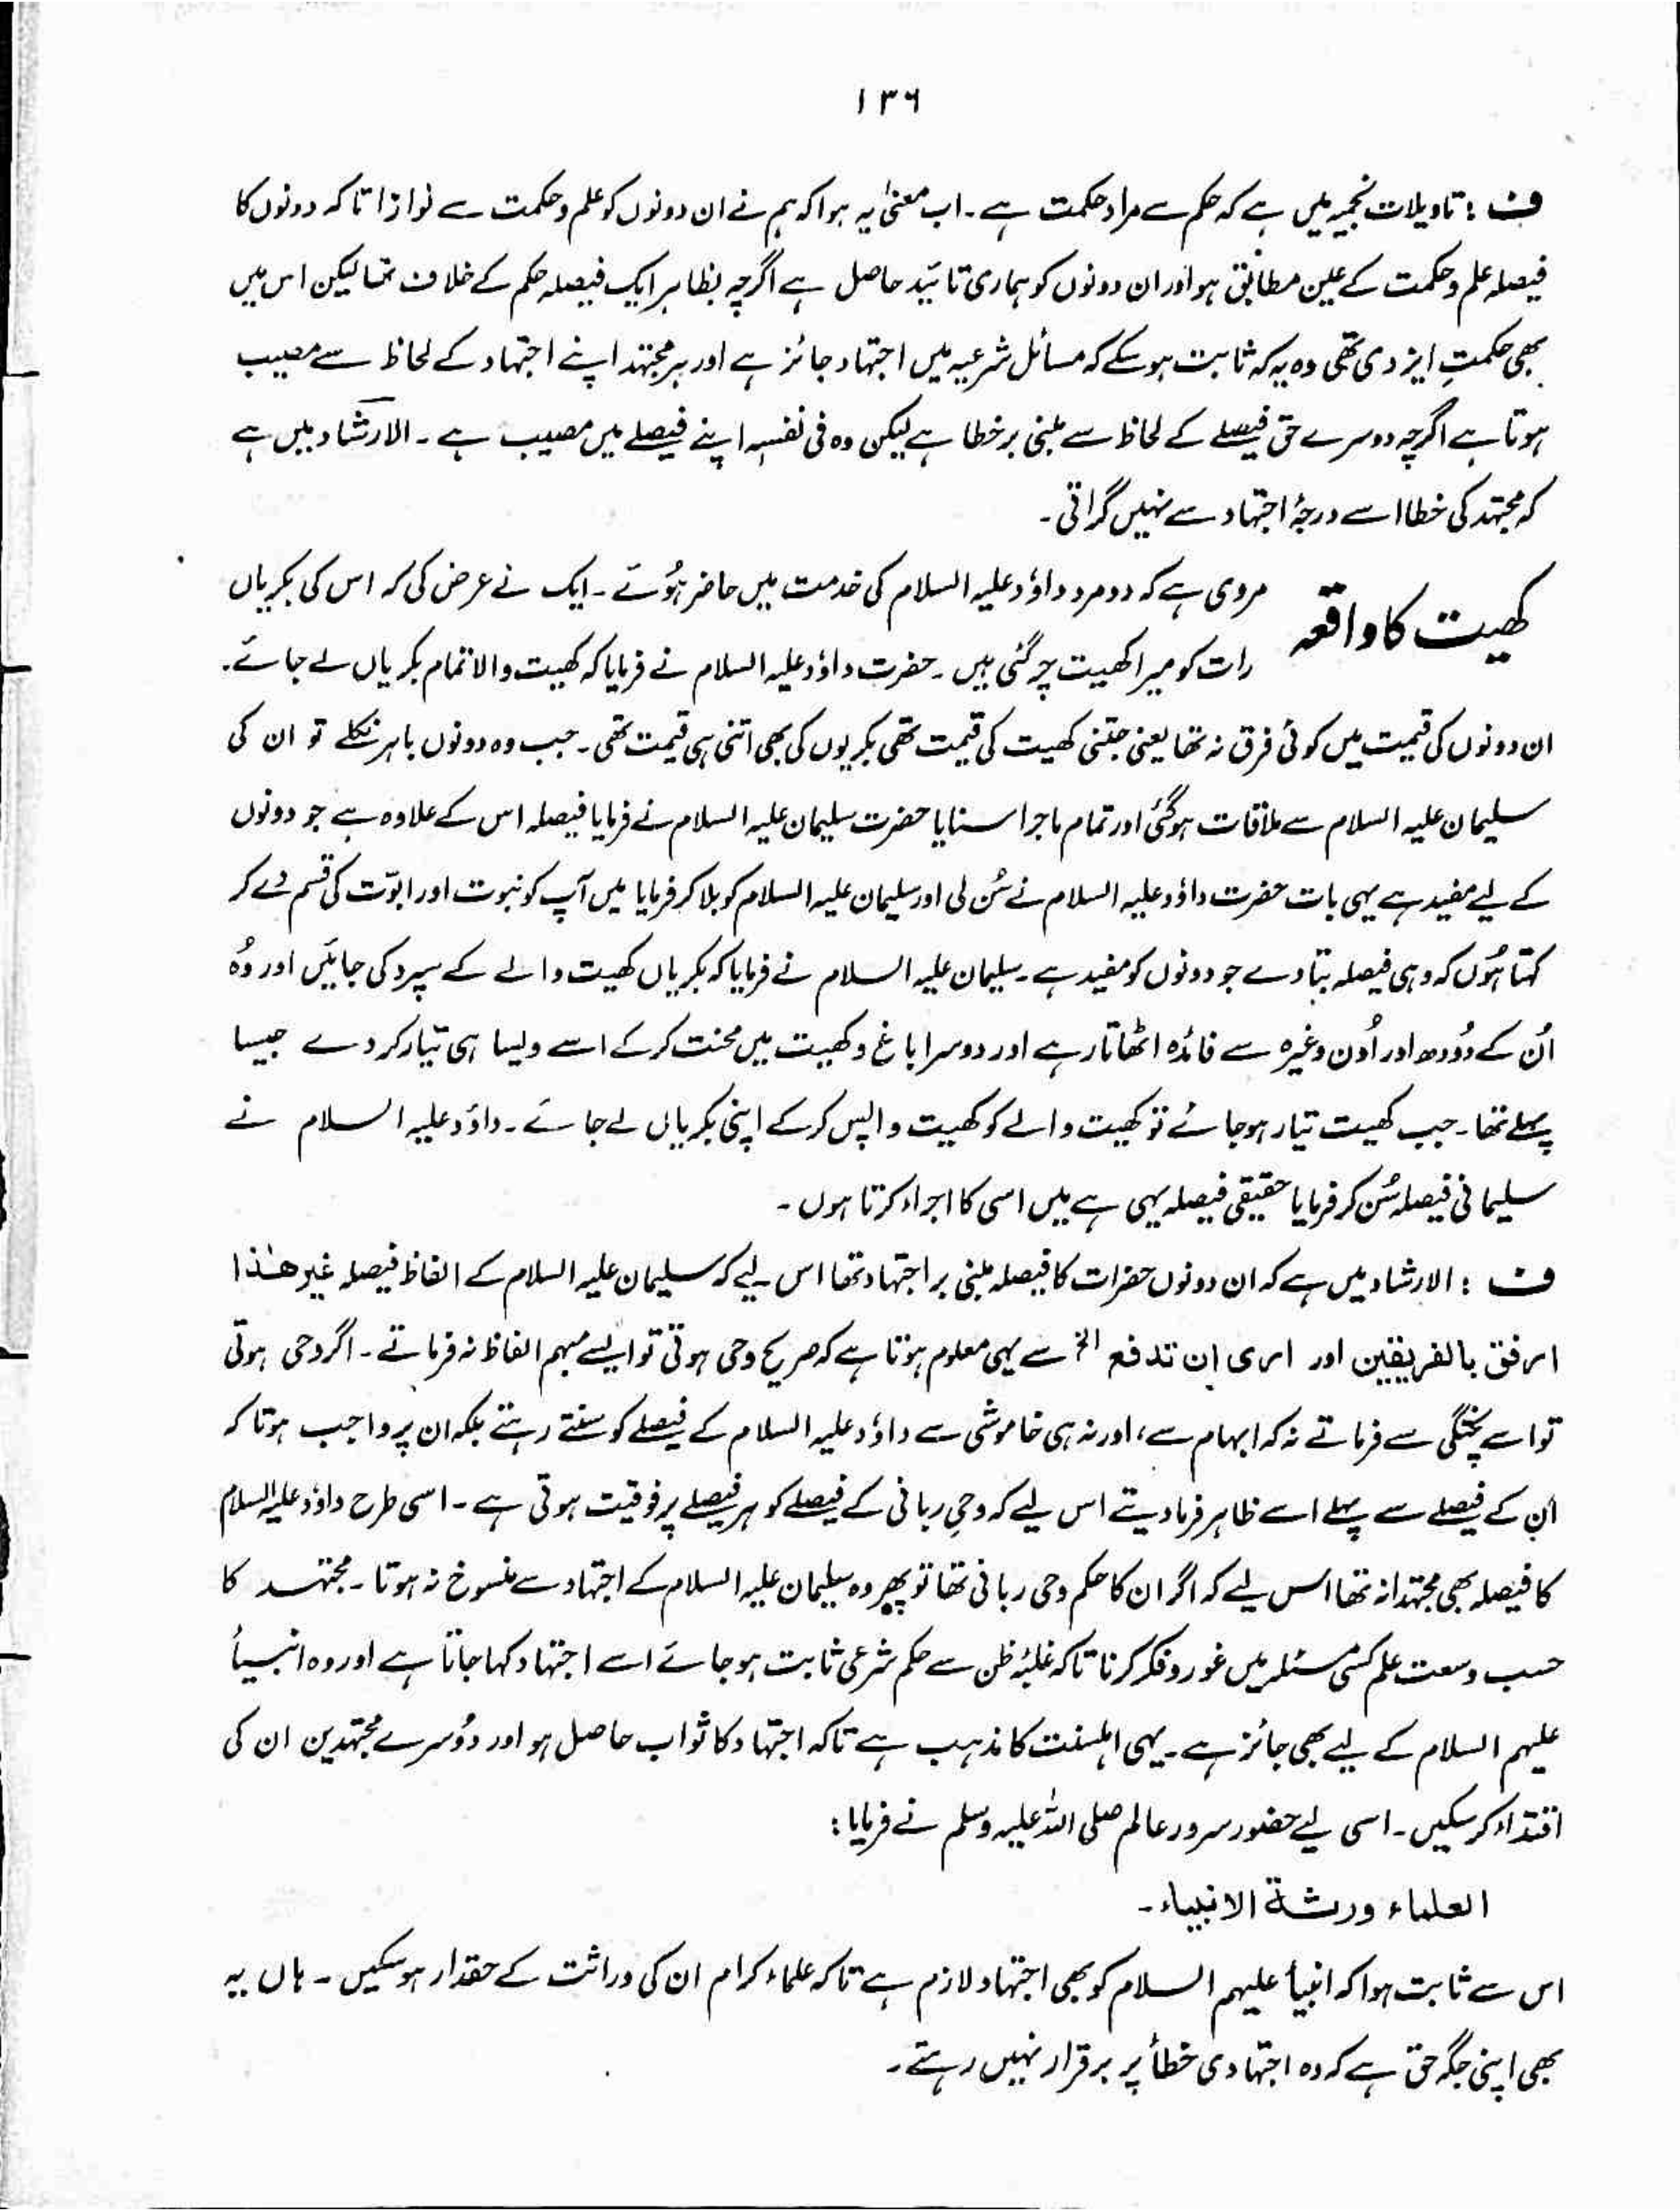 ۱۳۶
ف : تاویلات نجمیہ میں ہے کہ حکم سے مراد حکمت ہے ۔ اب معنیٰ یہ ہوا کہ ہم نے ان دونوں کو علم و حکمت سے نوازا تاکہ دونوں کا
فیصلہ علم و حکمت کے عین مطابق ہو اور ان دونوں کو ہماری تائید حاصل ہے اگرچہ بظاہر ایک فیصلہ حکم کے خلاف تھا لیکن اس میں
بھی حکمتِ ایزدی تھی وہ یہ کہ ثابت ہو سکے کہ مسائل شرعیہ میں اجتہاد جائز ہے اور ہر مجتہد اپنے اجتہاد کے لحاظ سے مصیب
ہوتا ہے اگرچہ دوسرے حق فیصلے کے لحاظ سے مبنی بر خطا ہے لیکن وہ فی نفسہٖ اپنے فیصلے میں مصیب ہے ۔ الارشاد میں ہے
کہ مجتہد کی خطا اسے درجۂ اجتہاد سے نہیں گراتی ۔
کھیت کا واقعہ
مروی ہے کہ دو مرد داؤد علیہ السلام کی خدمت میں حاضر ہُوئے ۔ ایک نے عرض کی کہ اس کی بکریاں
رات کو میرا کھیت چر گئی ہیں ۔ حضرت داؤد علیہ السلام نے فرمایا کہ کھیت والا تمام بکریاں لے جائے ۔
ان دونوں کی قیمت میں کوئی فرق نہ تھا یعنی جتنی کھیت کی قیمت تھی بکریوں کی بھی اتنی ہی قیمت تھی ۔ جب وہ دونوں باہر نکلے تو ان کی
سلیمان علیہ السلام سے ملاقات ہوگئی اور تمام ماجرا سنایا حضرت سلیمان علیہ السلام نے فرمایا فیصلہ اس کے علاوہ ہے جو دونوں
کے لیے مفید ہے یہی بات حضرت داؤد علیہ السلام نے سُن لی اور سلیمان علیہ السلام کو بلا کر فرمایا میں آپ کو نبوت اور ابوّت کی قسم دے کر
کہتا ہُوں کہ وہی فیصلہ بتا دے جو دونوں کو مفید ہے ۔ سلیمان علیہ السلام نے فرمایا کہ بکریاں کھیت والے کے سپرد کی جائیں اور وُہ
اُن کے دُودھ اور اُون وغیرہ سے فائدہ اٹھاتا رہے اور دوسرا باغ و کھیت میں محنت کرکے اسے ویسا ہی تیار کر دے جیسا
پہلے تھا ۔ جب کھیت تیار ہو جائے تو کھیت والے کو کھیت واپس کرکے اپنی بکریاں لے جائے ۔ داؤد علیہ السلام نے
سلیمانی فیصلہ سُن کر فرمایا حقیقی فیصلہ یہی ہے میں اسی کا اجراء کرتا ہوں ۔
ف : الارشاد میں ہے کہ ان دونوں حضرات کا فیصلہ مبنی بر اجتہاد تھا اس لیے کہ سلیمان علیہ السلام کے الفاظ فیصلہ غیر ھٰذا
ارفق بالفریقین اور اری ان تدفع الخ سے یہی معلوم ہوتا ہے کہ صریح وحی ہوتی تو ایسے مبہم الفاظ نہ فرماتے ۔ اگر وحی ہوتی
تو اسے پختگی سے فرماتے نہ کہ ابہام سے ، اور نہ ہی خاموشی سے داؤد علیہ السلام کے فیصلے کو سنتے رہتے بلکہ ان پر واجب ہوتا کہ
اُن کے فیصلے سے پہلے اسے ظاہر فرما دیتے اس لیے کہ وحیِ ربانی کے فیصلے کو ہر فیصلے پر فوقیت ہوتی ہے ۔ اسی طرح داؤد علیہ السلام
کا فیصلہ بھی مجتہدانہ تھا اس لیے کہ اگر ان کا حکم وحی ربانی تھا تو پھر وہ سلیمان علیہ السلام کے اجتہاد سے منسوخ نہ ہوتا ۔ مجتہد کا
حسب وسعت علم کسی مسئلہ میں غور و فکر کرنا تاکہ غلبۂ ظن سے حکم شرعی ثابت ہو جائے اسے اجتہاد کہا جاتا ہے اور وہ انبیأ
علیہم السلام کے لیے بھی جائز ہے ۔ یہی اہلسنت کا مذہب ہے تاکہ اجتہاد کا ثواب حاصل ہو اور دُوسرے مجتہدین ان کی
اقتداء کر سکیں ۔ اسی لیے حضور سرور عالم صلی اللہ علیہ وسلم نے فرمایا :
العلماء ورثۃ الانبیاء ۔
اس سے ثابت ہوا کہ انبیأ علیہم السلام کو بھی اجتہاد لازم ہے تاکہ علماء کرام ان کی وراثت کے حقدار ہو سکیں ۔ ہاں یہ
بھی اپنی جگہ حق ہے کہ وہ اجتہادی خطأ پر برقرار نہیں رہتے ۔